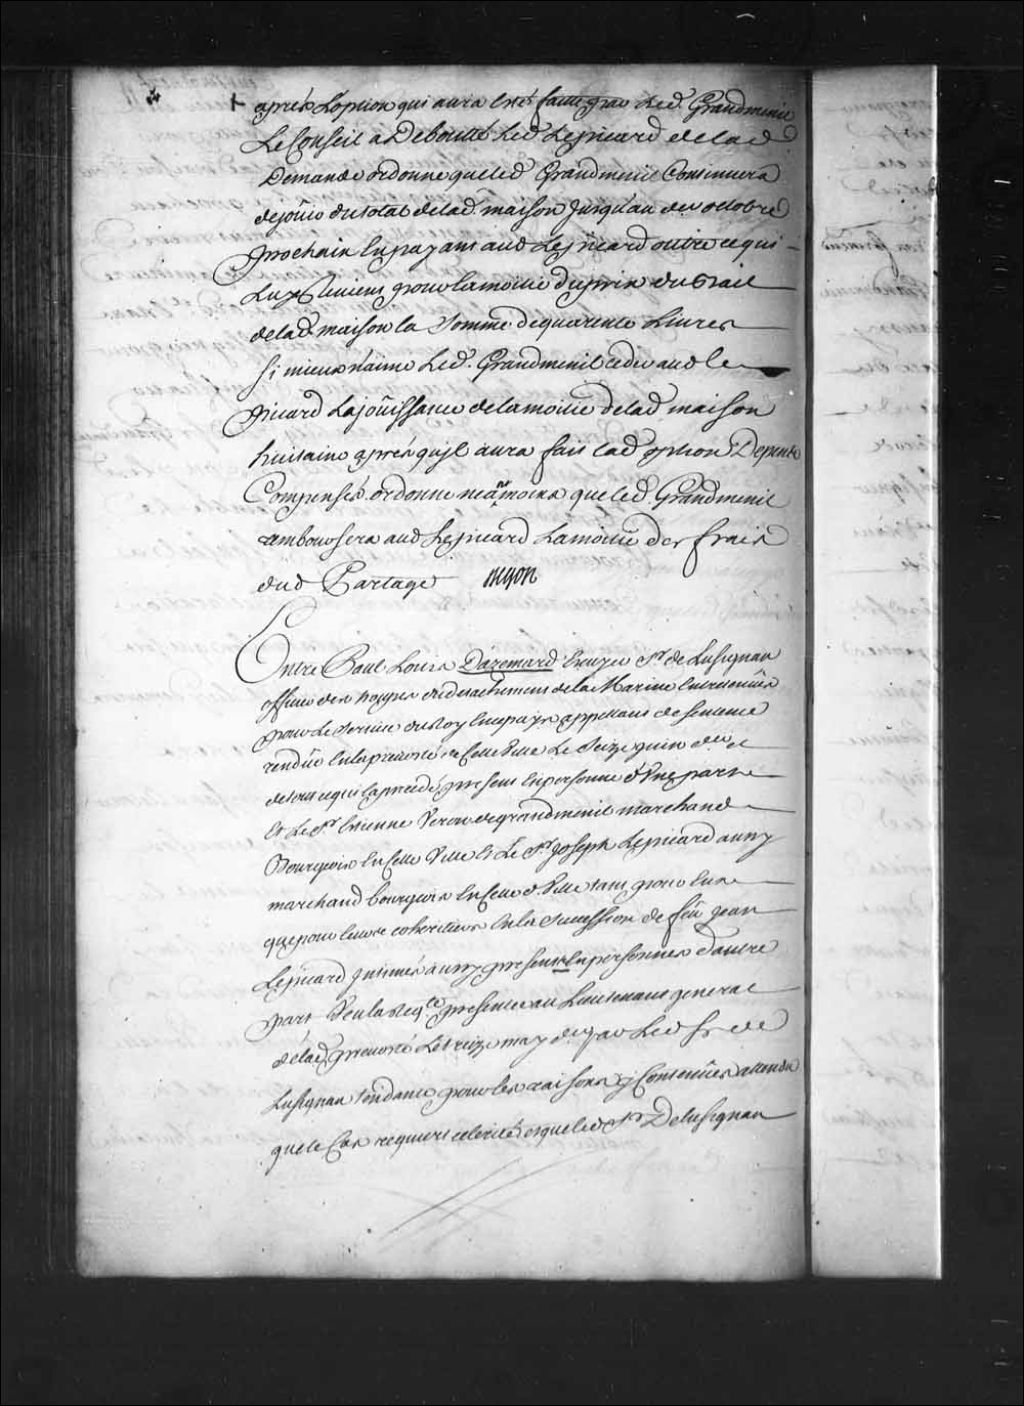 + aprés L'option qui aura Esté faitte par Led. Grandmenil
Le Conseil a Deboutté Led Lepicard de lad
Demande ordonne que led Grandmenil Continuera
de joüir du total de lad. maison jusqu'au der octobre
prochain En payant aud Lepicard outre ce qui
Luy pour la moitié du prix du Bail
de lad. maison la somme de quarente Livres
si mieux n'aime Led. Grandmenil ceder aud le
picard La joüissance de la moitié de lad maison
huitaine aprés qu'jl aura fait lad option Depens
Compensés. ordonne neanmoins que led. Grandmenil
rembousera aud Lepicard La moitié des frais
dud Partage Bigon
Entre Paul Louis Dazemard Ecuyer Sr. de Lusignan
officier des troupes du detachement de la Marine Entretenües
pour Le service du Roy En ce païs appellant de sentence
rendüe En la prevosté de Cette Ville Le Seize juin der et
de tout ce qui a precedé present En personne d'Vne part
Et Le Sr. Etienne Veron de grandmenil marchand
Bourgeois En Cette Ville Et Le Sr. Joseph Lepicard aussy
marchand bourgeois En Cette d. Ville tant pour Luy
que pour Leurs coheritiers En la Succession de feu Jean
Lepicard jntimés aussy presents En personnes d'autre
part Veu la Reqte. presentée au Lieutenant general
de lad. prevosté Le treize may der. par Led Sr. de
Lusignan tendante pour les raisons y Contenües attendu
que le Cas requiert celerité et que led Sr. Delusignan